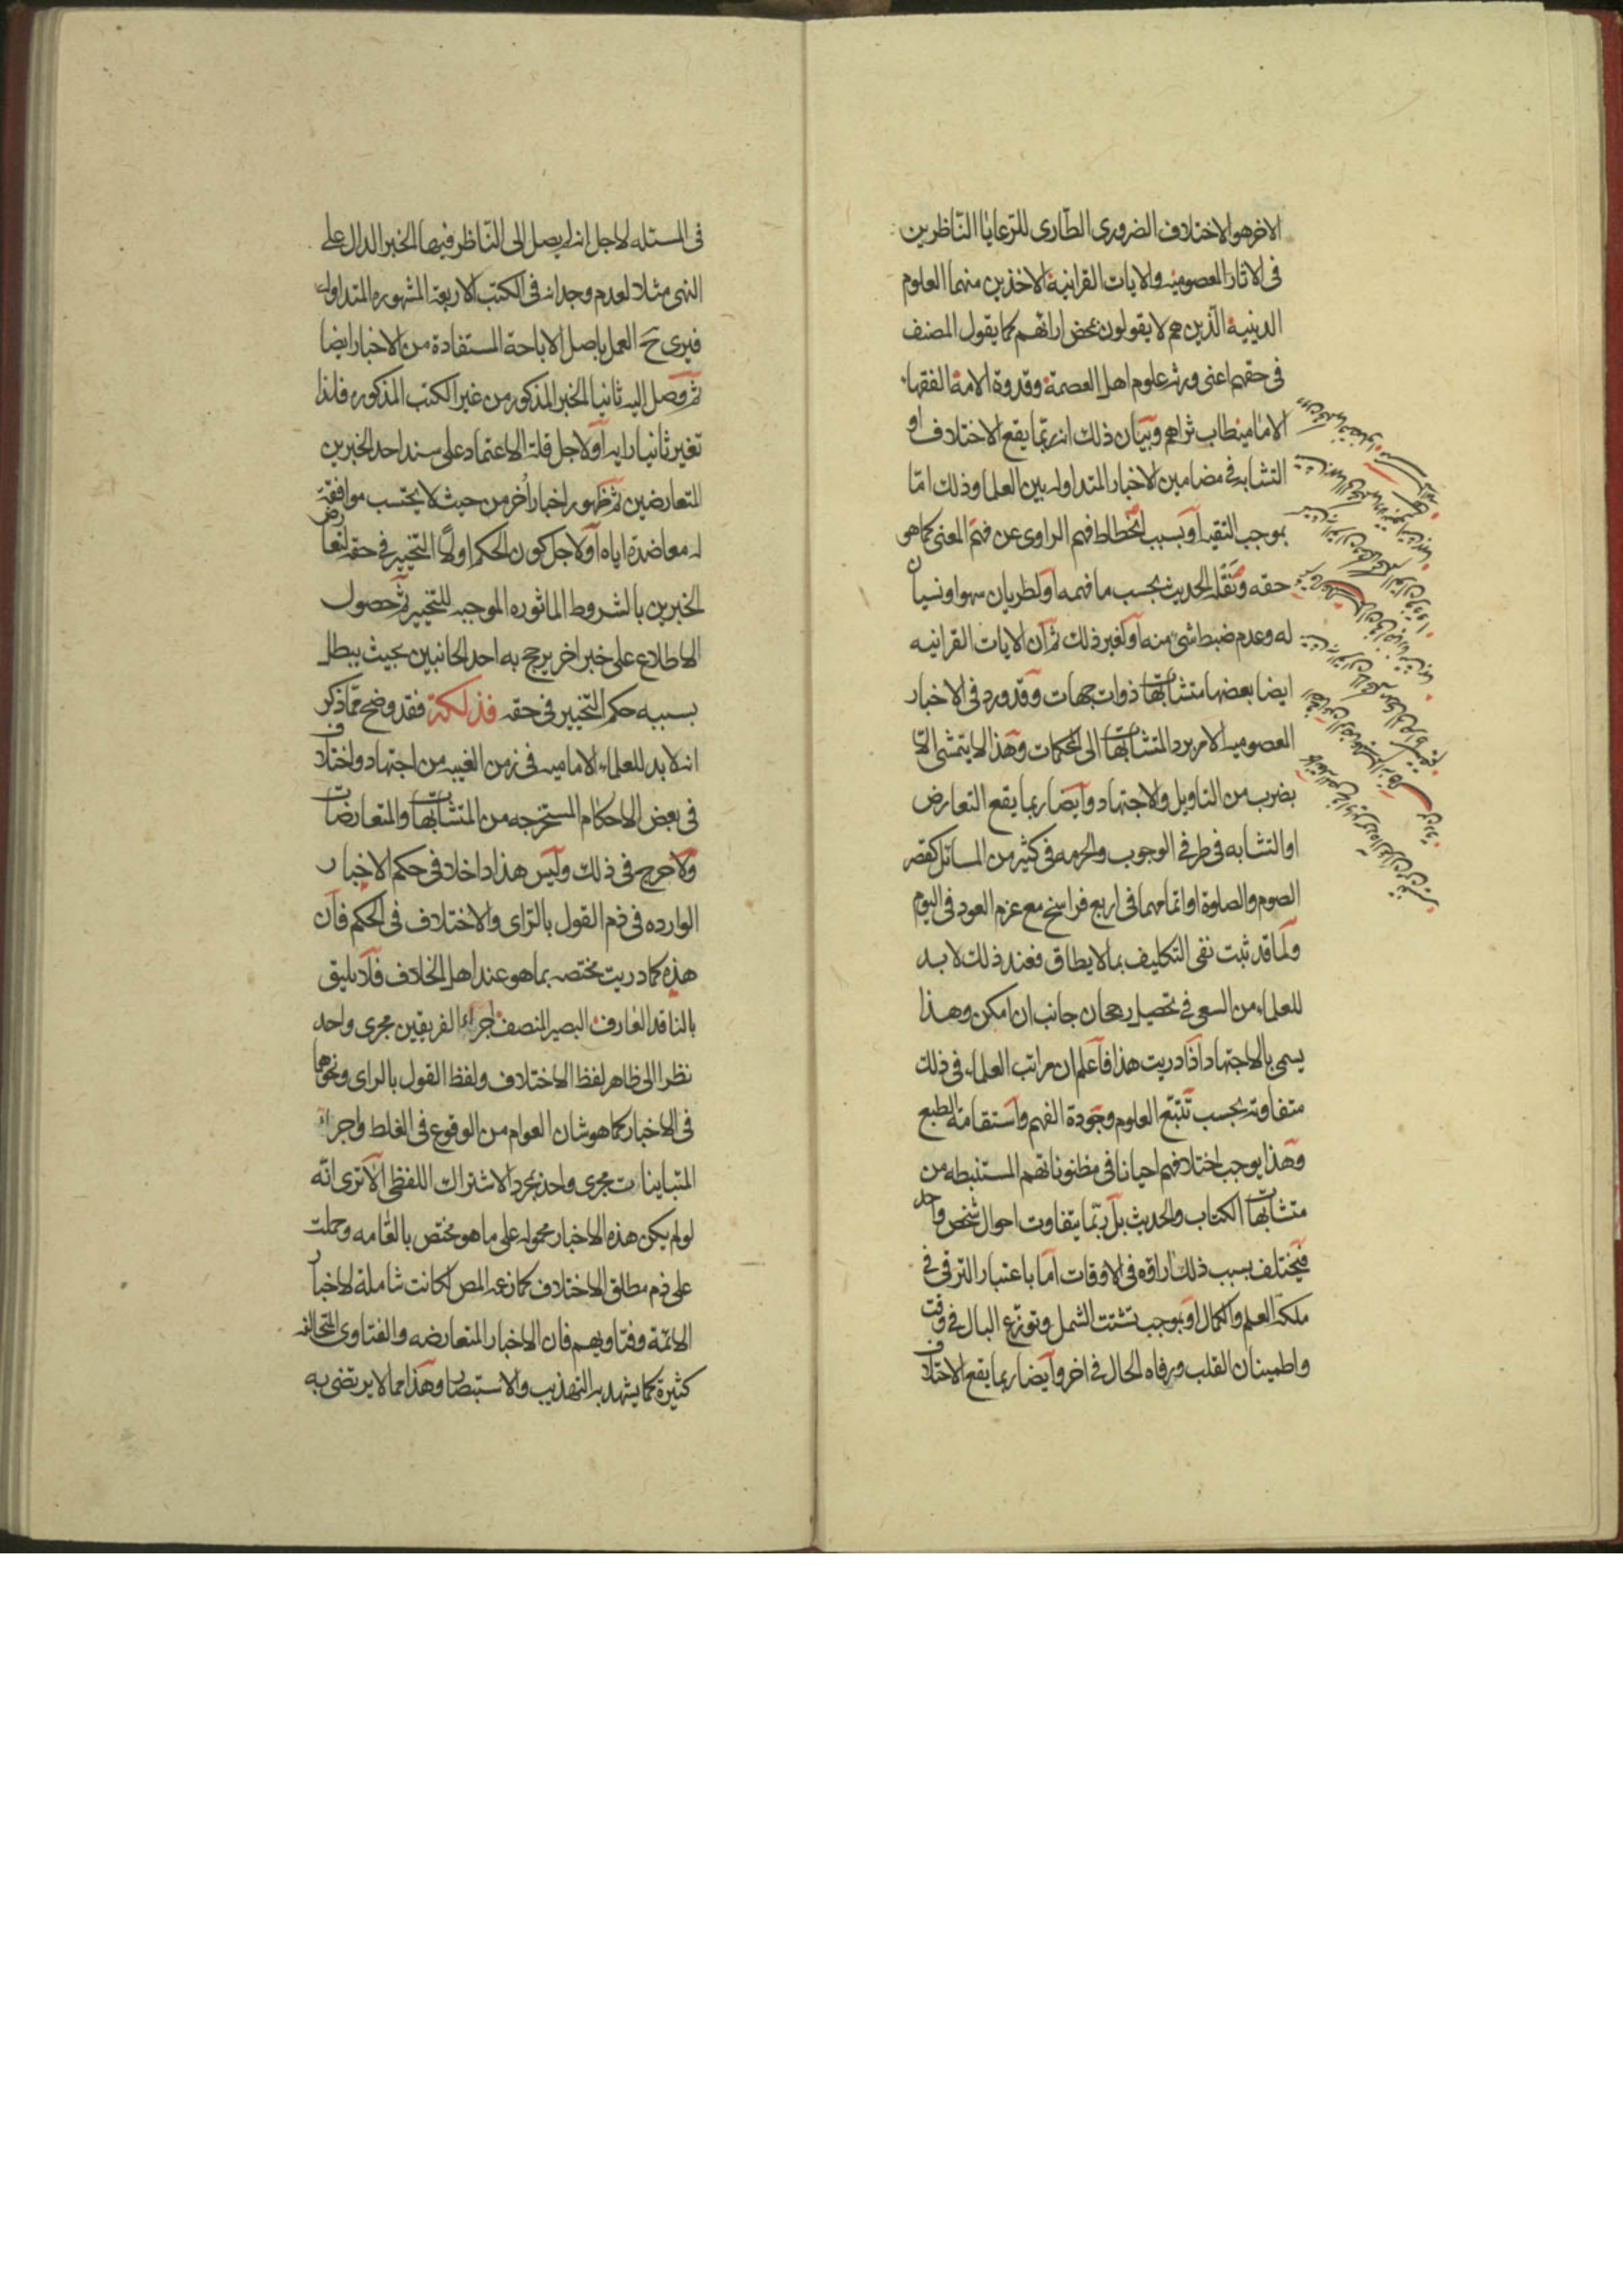 الاخر هو الاختلاف الضروري الطّاري للرّعايا النّاظرين
في الاثار المعصوميه والايات القرانية الاخذين منهما العلوم
الدينية الّذين هم لا يقولون بمحض ارائهم كما يقول المصنف
في حقهم اعني ورثة علوم اهل العصمة وقدوة الامة الفقهاء
الاماميه طاب ثراهم وبيان ذلك انه ربّما يقع الاختلاف او
التشابه في مضامين الاخبار المتداوله بين العلما وذلك امّا
بموجب التقيه او بسبب انحطاط فهم الراوي عن فهم المعنى كما هو
حقه ونقله الحديث بحسب ما فهمه او لطريان سهو او نسيان
له وعدم ضبط شيء منه او لغير ذلك ثم ان الايات القرانيه
ايضا بعضها متشابهات ذوات جهات وقد ورد في الاخبار
المعصوميه الامر برد المتشابهات الى المحكمات وهذا لا يتمشى الّا
بضرب من التاويل والاجتهاد وايضا ربما يقع التعارض
او التشابه في طرفي الوجوب والحرمه في كثير من المسائل كقصر
الصوم والصلوة او اتمامهما في اربع فراسخ مع عزم العود في اليوم
ولما قد ثبت نفي التكليف بما لا يطاق فعند ذلك لا بد
للعلماء من السعي في تحصيل رجحان جانب ان امكن وهذا
يسمى بالاجتهاد اذا دريت هذا فاعلم ان مراتب العلماء في ذلك
متفاوته بحسب تتبّع العلوم وجودة الفهم واستقامة الطبع
وهذا يوجب اختلافهم احيانا في مظنوناتهم المستنبطه من
متشابهات الكتاب والحديث بل ربّما يتفاوت احوال شخص واحد
فيختلف بسبب ذلك اراؤه في الاوقات امّا باعتبار الترقي في
ملكة العلم والكمال او بموجب تشتت الشمل وتوزّع البال في وقت
واطمينان القلب ورفاه الحال في اخر وايضا ربما يقع الاختلاف
في المسئله لاجل انه لم يصل الى النّاظر فيها الخبر الدال على
النهي مثلا لعدم وجدانه في الكتب الاربعة المشهوره المتداوله
فيرى ح العمل باصل الاباحة المستفادة من الاخبار ايضا
ثم وصل اليه ثانيا الخبر المذكور من غير الكتب المذكوره فلذا
تغير ثانيا رايه او لاجل قلة الاعتماد على سند احد الخبرين
المتعارضين ثم ظهور اخبار أخر من حيث لا يحتسب موافقة
له معاضدة اياه او لاجل كون الحكم اولًا التخيير في حقه لتعارض
الخبرين بالشروط الماثوره الموجبه للتخيير ثم حصول
الاطلاع على خبر اخر يرجح به احد الجانبين بحيث يبطل
بسببه حكم التخيير في حقه فذلكة فقد وضح ممّا ذكر
انه لا بد للعلماء الاماميه في زمن الغيبه من اجتهاد واختلاف
في بعض الاحكام المستخرجه من المتشابهات والمتعارضات
ولا حرج في ذلك وليس هذا داخلا في حكم الاخبار
الوارده في ذم القول بالرّاي والاختلاف في الحكم فان
هذه كما دريت مختصه بما هو عند اهل الخلاف فلا يليق
بالناقد العارف البصير المنصف اجراء الفريقين مجرى واحد
نظرا الى ظاهر لفظ الاختلاف ولفظ القول بالراى ونحوهما
في الاخبار كما هو شان العوام من الوقوع في الغلط واجراء
المتباينات مجرى واحد بمجرد الاشتراك اللفظي الا ترى انّه
لو لم يكن هذه الاخبار محموله على ما هو مختص بالعامه وحملت
على ذم مطلق الاختلاف كما زعمه المص لكانت شاملة لاخبار
الائمّة وفتاويهم فان الاخبار المتعارضه والفتاوى المتخالفه
كثيرة كما يشهد به التهذيب والاستبصار وهذا مما لا يرتضى به